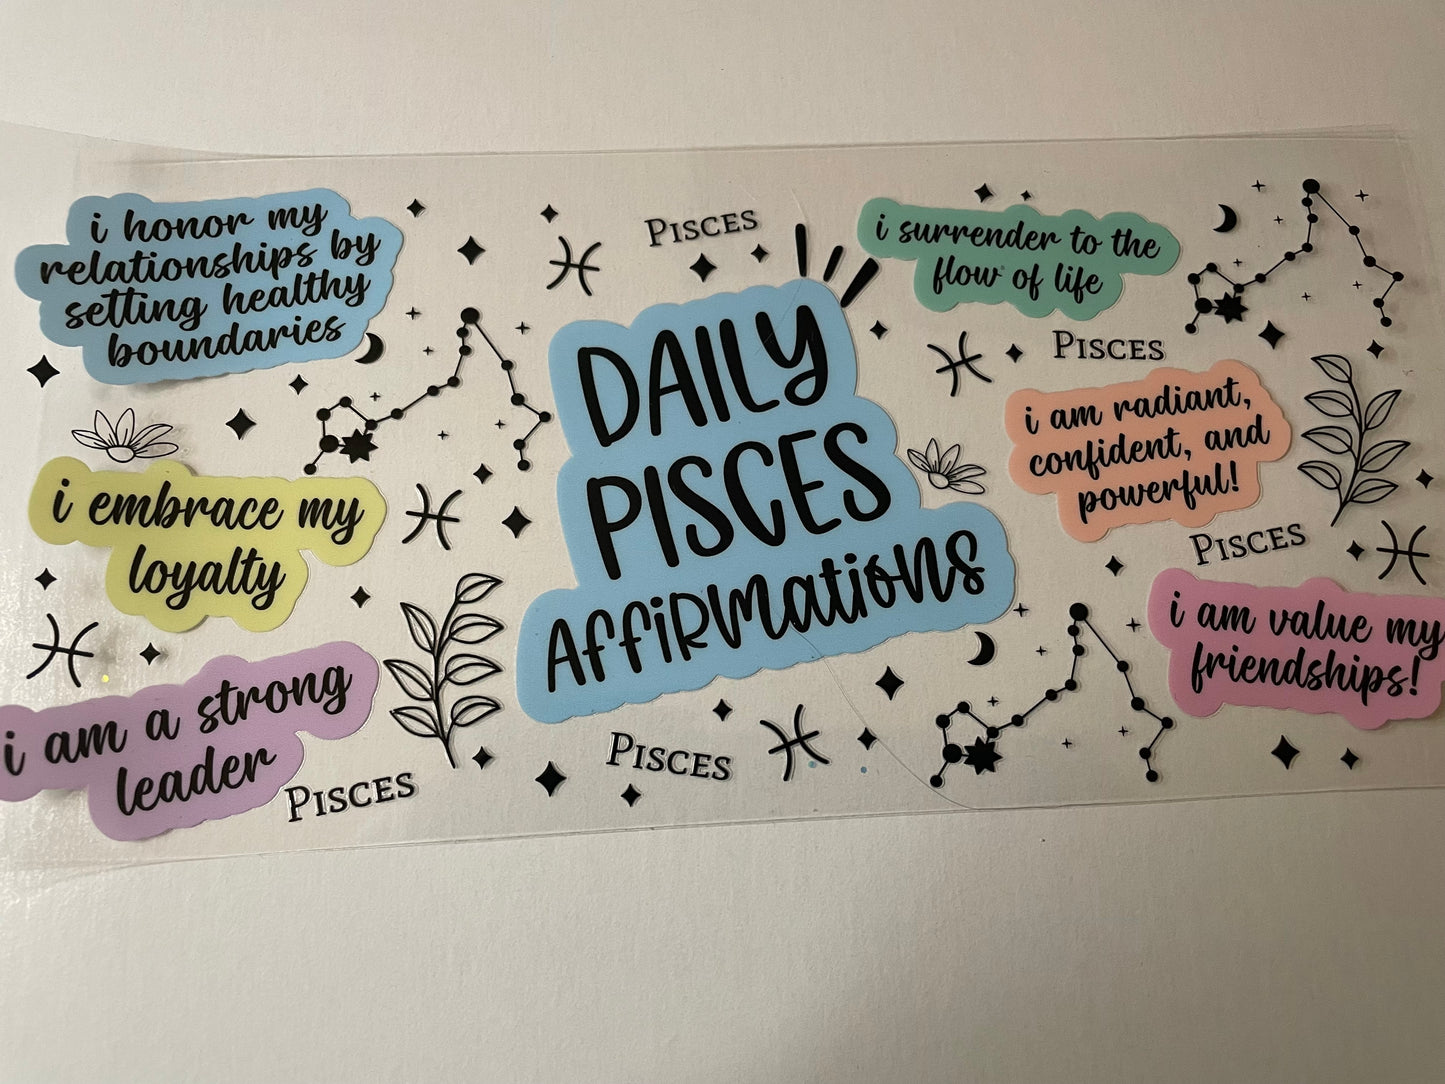 i honor my
relationships by
setting healthy
boundaries
i embrace my
loyalty
i am a strong
leader
PISCES
PISCES
DAILY
PISCES
AFFIRMATIONS
PISCES
i surrender to the
flow of life
PISCES
i am radiant,
confident, and
powerful!
PISCES
i am value my
friendships!